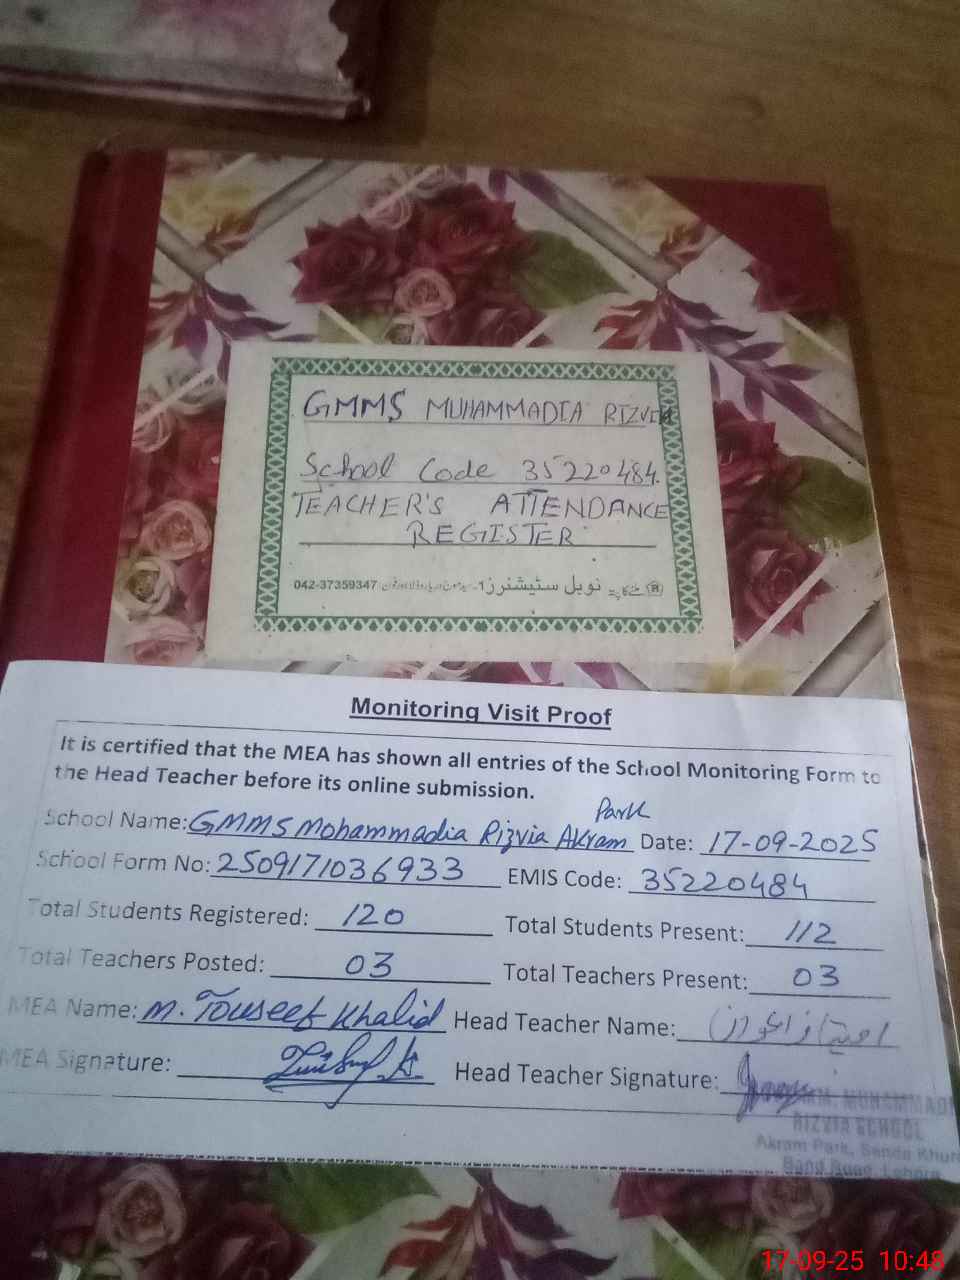 GMMS MUHAMMADIA RIZVIA
School Code 35220484.
TEACHER'S ATTENDANCE
REGISTER
042-37359347 نوبل سٹیشنرز
Monitoring Visit Proof
It is certified that the MEA has shown all entries of the School Monitoring Form to
the Head Teacher before its online submission.
School Name: GMMS Mohammadia Rizvia Akram Park Date: 17-09-2025
School Form No: 2509171036933 EMIS Code: 35220484
Total Students Registered: 120 Total Students Present: 112
Total Teachers Posted: 03 Total Teachers Present: 03
MEA Name: M. Touseef Khalid Head Teacher Name:
MEA Signature: Head Teacher Signature:
MUHAMMADI
RIZVIA SCHOOL
Akram Park, Sanda Khur
Band Road, Lahore
17-09-25 10:48